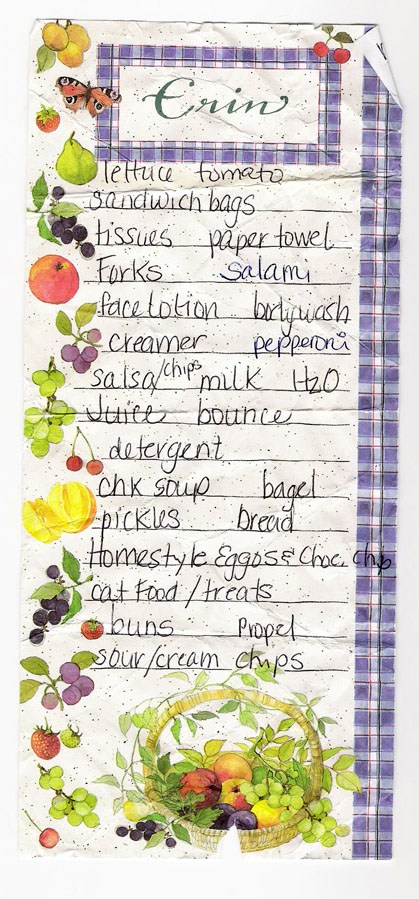 Erin
lettuce tomato
sandwich bags
tissues paper towel
Forks salami
face lotion bodywash
creamer pepperoni
salsa/chips milk H2O
Juice bounce
detergent
chk soup bagel
pickles bread
Homestyle Eggos & Choc. chip
cat food / treats
buns Propel
sour/cream chips